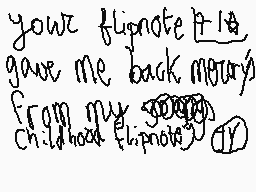 your flipnote +10
gave me back memory's
from my
childhood flipnote's